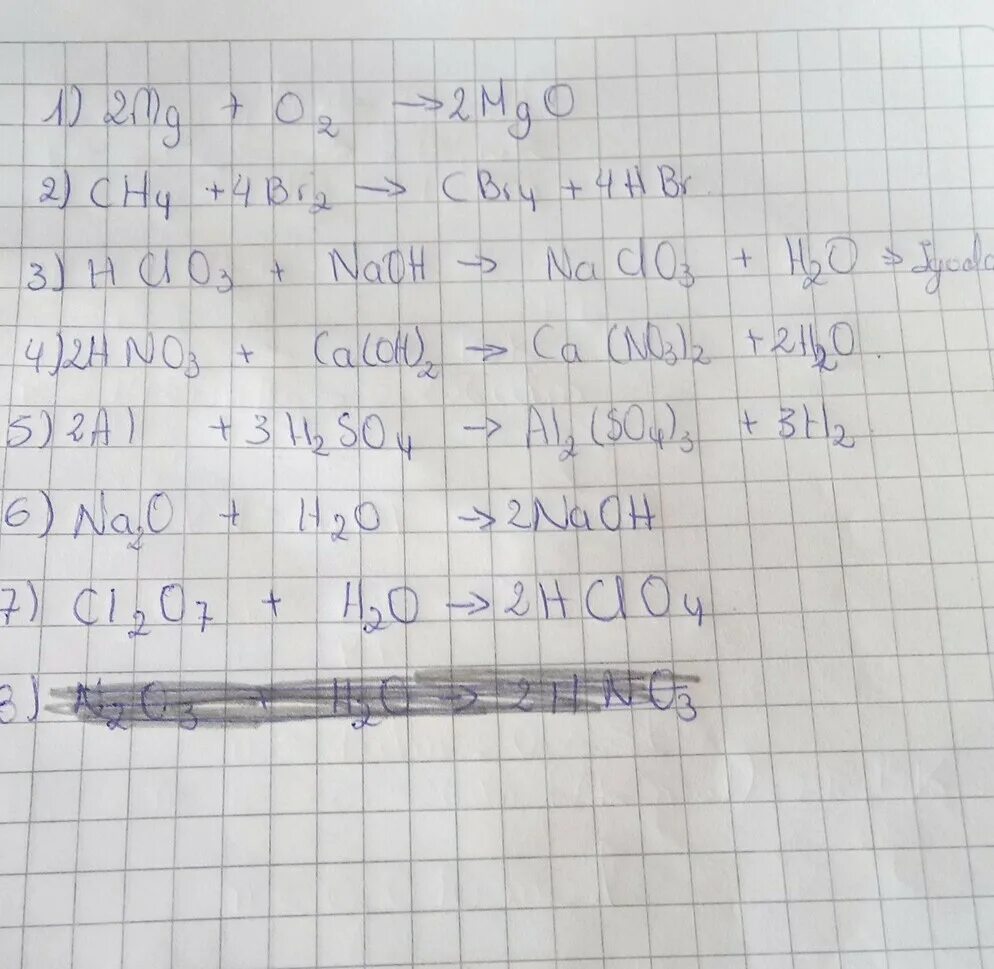 1) 2Mg + O₂ → 2MgO
2) CH₄ + 4Br₂ → CBr₄ + 4HBr
3) HClO₃ + NaOH → NaClO₃ + H₂O ⇒
4) 2HNO₃ + Ca(OH)₂ → Ca(NO₃)₂ + 2H₂O.
5) 2Al + 3H₂SO₄ → Al₂(SO₄)₃ + 3H₂
6) Na₂O + H₂O → 2NaOH
7) Cl₂O₇ + H₂O → 2HClO₄
8) N₂O₃ + H₂O → 2HNO₃